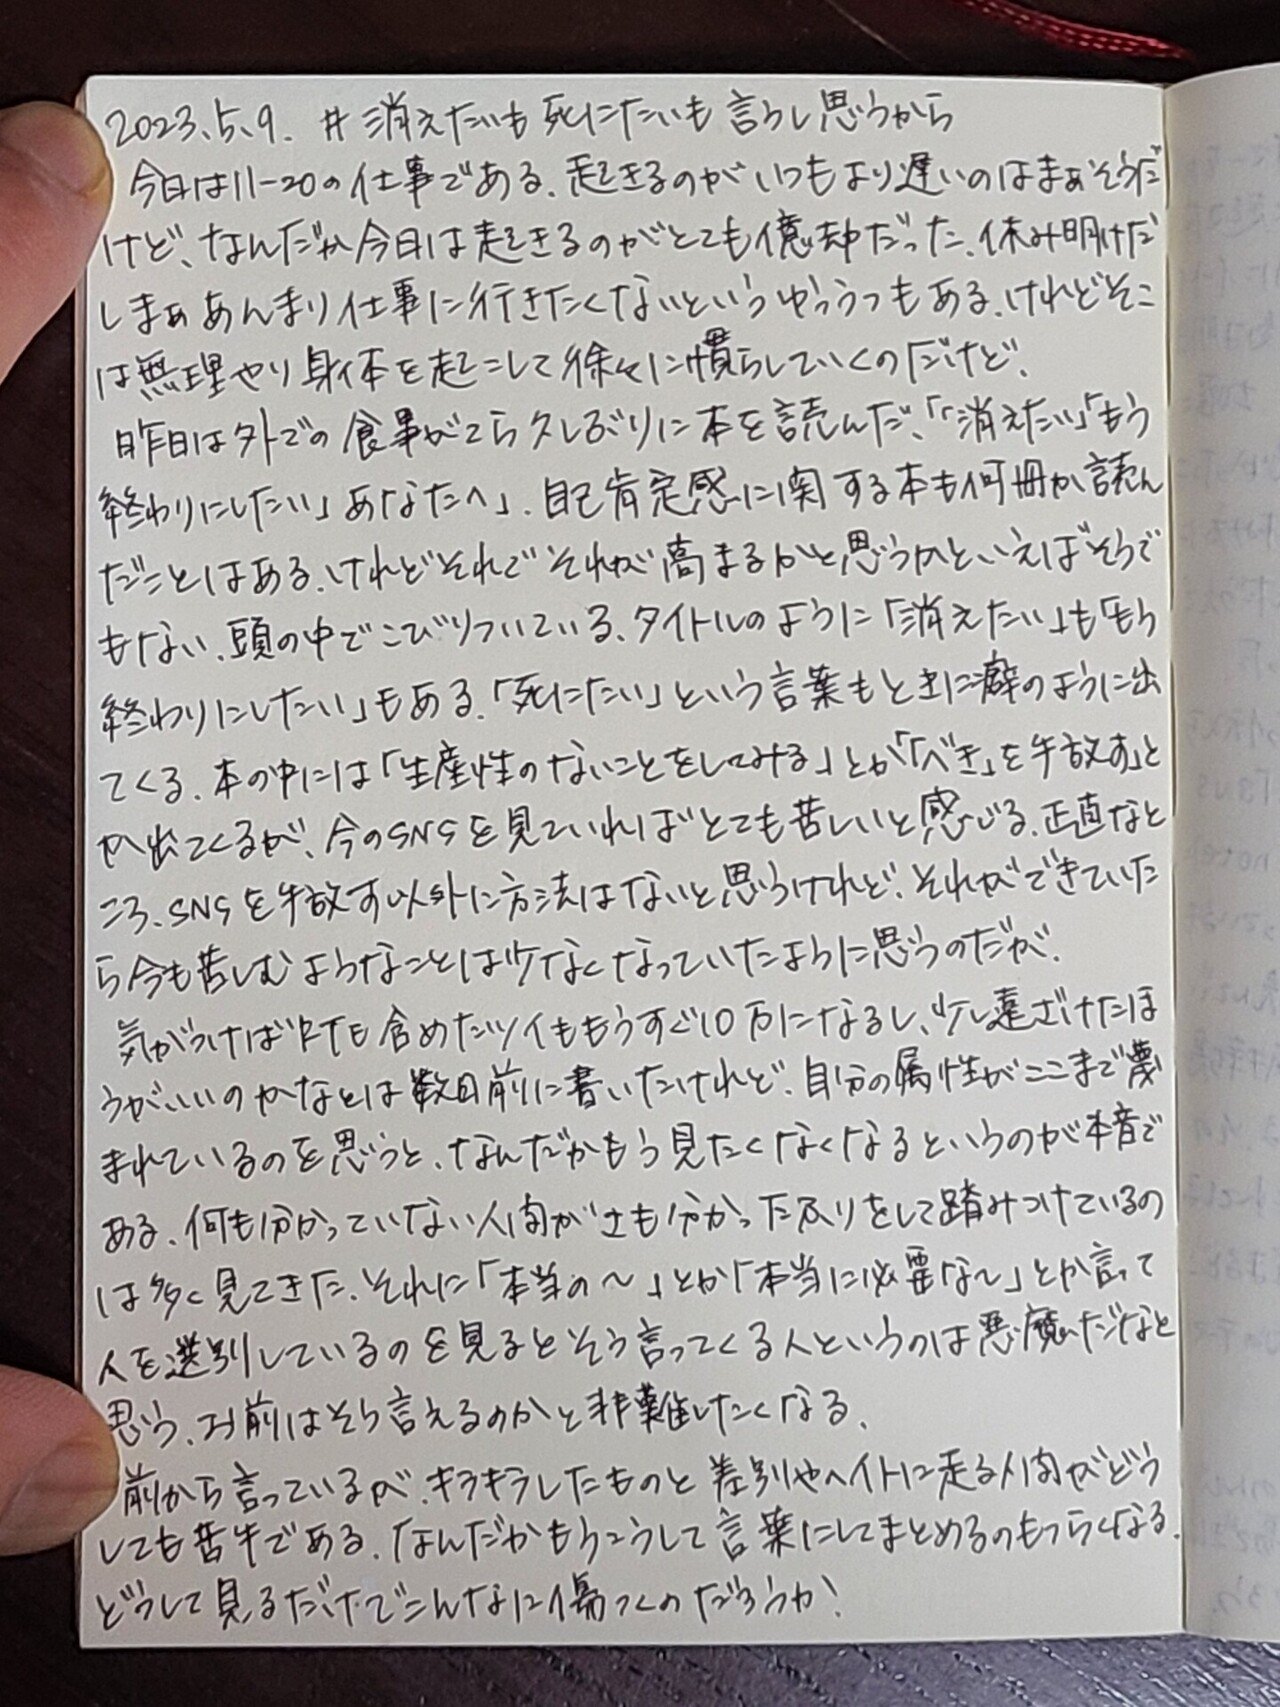 2023.5.9. #消えたいも死にたいも言うし思うから
今日は11-20の仕事である.起きるのがいつもより遅いのはまぁそうだ
けど、なんだか今日は起きるのがとても億劫だった.休み明けだ
しまぁあんまり仕事に行きたくないというゆううつもある.けれどそこ
は無理やり身体を起こして徐々に慣らしていくのだけど.
昨日は外での食事がてら久しぶりに本を読んだ、「「消えたい」「もう
終わりにしたい」あなたへ」.自己肯定感に関する本も何冊か読ん
だことはある.けれどそれでそれが高まるかと思うかといえばそうで
もない.頭の中でこびりついている.タイトルのように「消えたい」も「もう
終わりにしたい」もある.「死にたい」という言葉もときに癖のように出
てくる.本の中には「生産性のないことをしてみる」とか「「べき」を手放す」と
か出てくるが、今のSNSを見ていればとても苦しいと感じる.正直なと
ころ.SNSを手放す以外に方法はないと思うけれど.それができていた
ら今も苦しむようなことは少なくなっていたように思うのだが.
気がつけばRTも含めたツイももうすぐ10万になるし、少し遠ざけたほ
うがいいのかなとは数日前に書いたけれど.自分の属性がここまで蔑
まれているのを思うと、なんだかもう見たくなくなるというのが本音で
ある.何も分かっていない人間がさも分かったふりをして踏みつけているの
は多く見てきた.それに「本当の〜」とか「本当に必要な〜」とか言って
人を選別しているのを見るとそう言ってくる人というのは悪魔だなと
思う.お前はそう言えるのかと非難したくなる.
前から言っているが.キラキラしたものと差別やヘイトに走る人間がどう
しても苦手である.なんだかもうこうして言葉にしてまとめるのもつらくなる.
どうして見るだけでこんなに傷つくのだろうか!